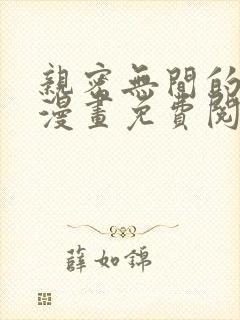 親密無間的
漫畫免費閱
薛如錦